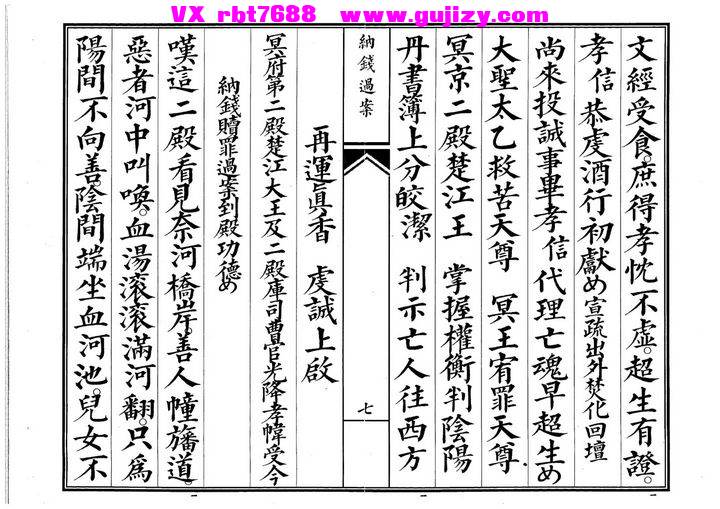 VX rbt7688 www.gujizy.com
文經受食。庶得孝忱不虛。超生有證。
孝信恭虔酒行初獻め宣疏出外焚化回壇
尚來投誠事畢孝信代理亡魂早超生め
大聖太乙救苦天尊 冥王宥罪天尊
冥京二殿楚江王 掌握權衡判陰陽
丹書簿上分皎潔 判示亡人往西方
納錢過案
七
再運眞香 虔誠上啟
冥府第二殿楚江大王及二殿庫司曹官光降孝幃受今
納錢贖罪過案到殿功德め
嘆這二殿看見奈河橋岸。善人幢旛道。
惡者河中叫喚。血湯滾滾滿河翻。只為
陽間不向善。陰間端坐血河池。兒女不